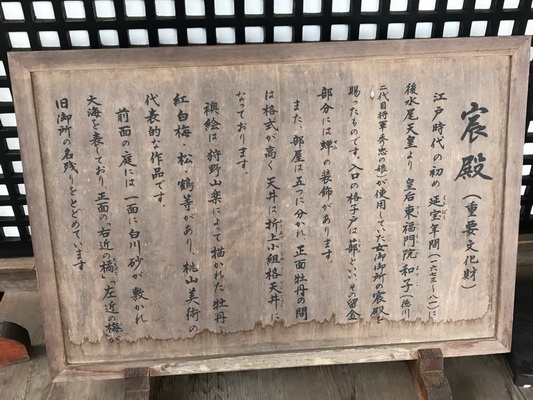 宸殿（重要文化財）
江戸時代の初め 延宝年間（一六七三〜八一）に
後水尾天皇より 皇后東福門院 和子（徳川
二代目将軍 秀忠の娘）が使用していた女御御所の宸殿を
賜ったものです。入口の格子戸は蔀といい、その留金
部分には蝉の装飾があります。
また、部屋は五つに分かれ 正面牡丹の間
は格式が高く 天井は折上小組格天井に
なっております。
襖絵は 狩野山楽によって描かれた 牡丹
紅白梅・松・鶴等があり、桃山美術の
代表的な作品です。
前面の庭には一面に白川砂が敷かれ
大海を表しており、正面の右近の橘、左近の梅が
旧御所の名残りをとどめています。